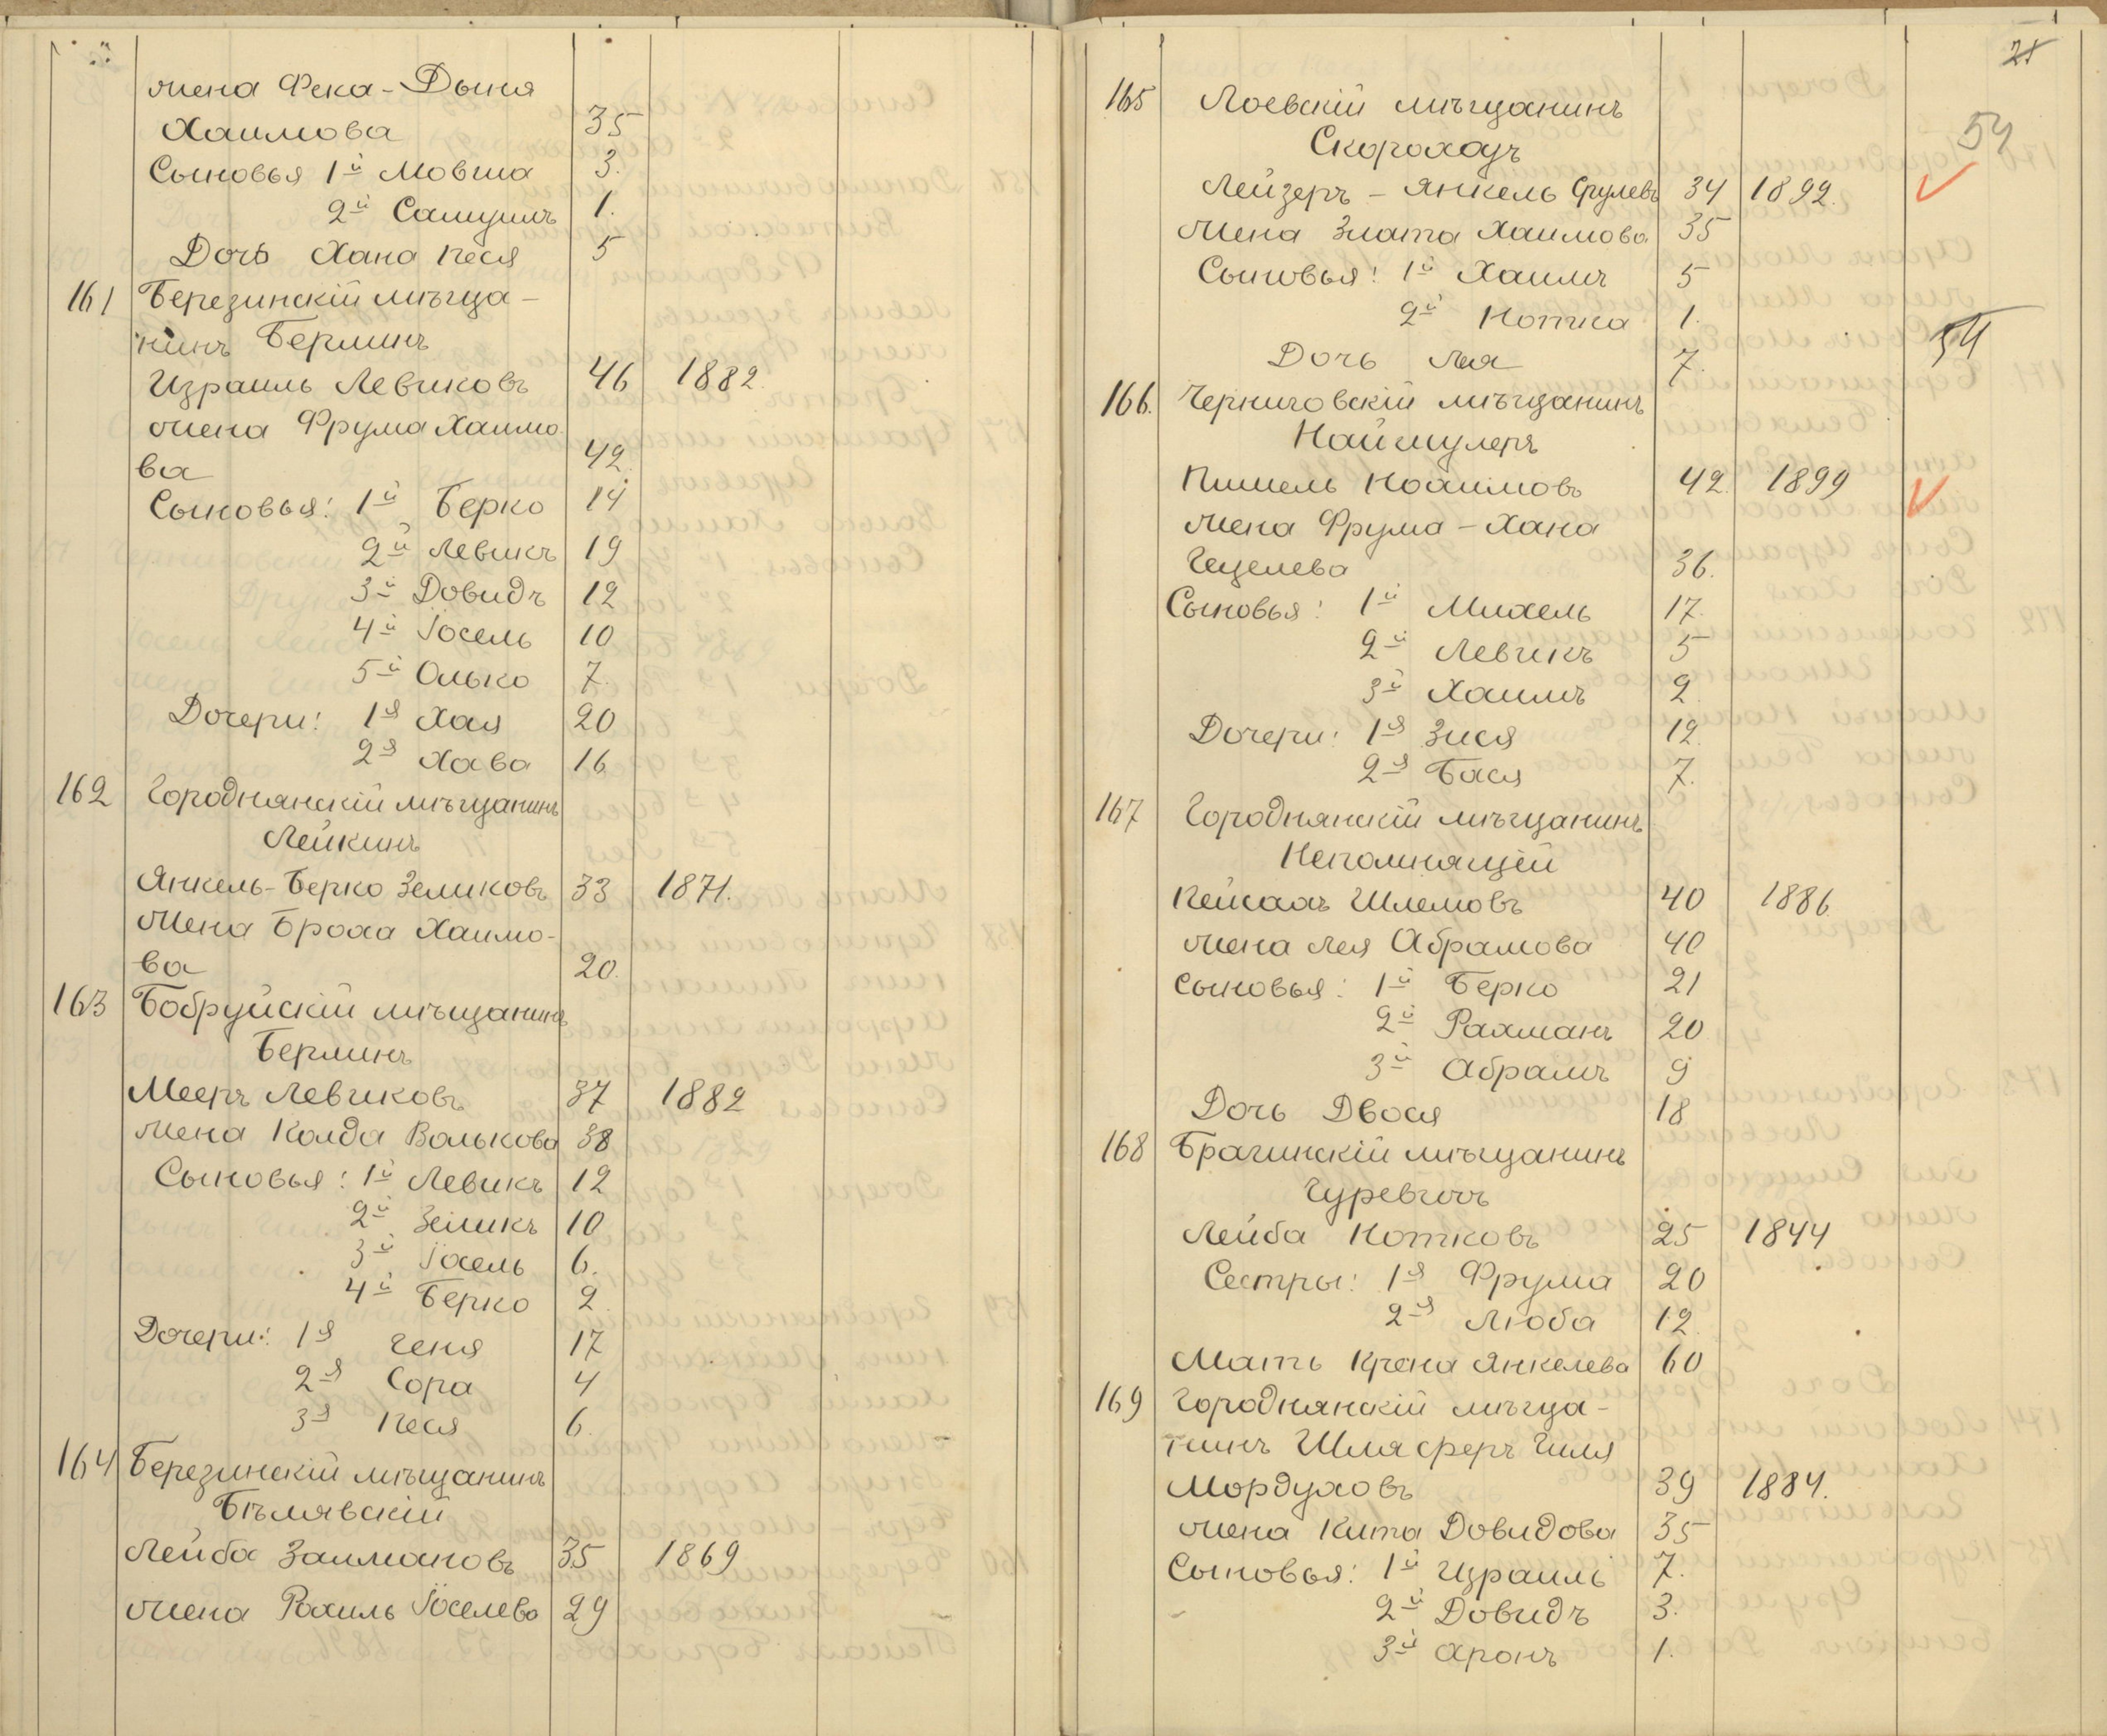 жена Фека-Дыня
Хаимова 35
Сыновья 1й Мовша 3.
2й Самуилъ 1.
Дочь Хана Песя 5
161 Березинскій мѣща-
нинъ Берлинъ
Израиль Левиковъ 46 1882.
жена Фрума Хаимо
ва 42.
Сыновья: 1й Берко 14
2й Левикъ 19
3й Довидъ 12
4й Іосель 10
5й Олько 7.
Дочери: 1я Хая 20
2я Хава 16
162 Городнянскій мѣщанинъ
Лейкинъ
Янкель-Берко Зеликовъ 33 1871.
Жена Броха Хаимо-
ва 20.
163 Бобруйскій мѣщанинъ
Берлинъ
Мееръ Левиковъ 37 1882
жена Колда Волькова 38
Сыновья: 1й Левикъ 12
2й Зеликъ 10
3й Іосель 6.
4й Берко 2.
Дочери: 1я Геня 17
2я Сора 4
3я Песя 6.
164 Березинскій мѣщанинъ
Бѣлявскій
Лейба Залмановъ 35 1869
жена Рохиль Іоселева 29
21
165 Лоевскій мѣщанинъ
Скороходъ 54
Лейзеръ - Янкель Срулевъ 34 1892.
Жена Злата Хаимова 35
Сыновья: 1й Хаимъ 5
2й Нотка 1.
Дочь Лея 7. 54
166. Черниговскій мѣщанинъ
Наймулеръ
Пишель Ноаимовъ 42. 1899
жена Фрума - Хана
Гецелева 36.
Сыновья: 1й Михель 17.
2й Левикъ 5
3й Хаимъ 2.
Дочери: 1я Зися 12.
2я Бася 7.
167 Городнянскій мѣщанинъ
Непомнящій
Пейсахъ Шлемовъ 40 1886
жена Лея Абрамова 40
Сыновья: 1й Берко 21
2й Рахманъ 20
3й Абрамъ 9
Дочь Двося 18
168 Брагинскій мѣщанинъ
Гуревичъ
Лейба Нотковъ 25 1844
Сестры: 1я Фрума 20
2я Люба 12.
Мать Крена Янкелева 60
169 Городнянскій мѣща-
нинъ Шляферъ Гиля
Мордуховъ 39 1884.
жена Кита Довидова 35
Сыновья: 1й Израиль 7.
2й Довидъ 3.
3й Аронъ 1.